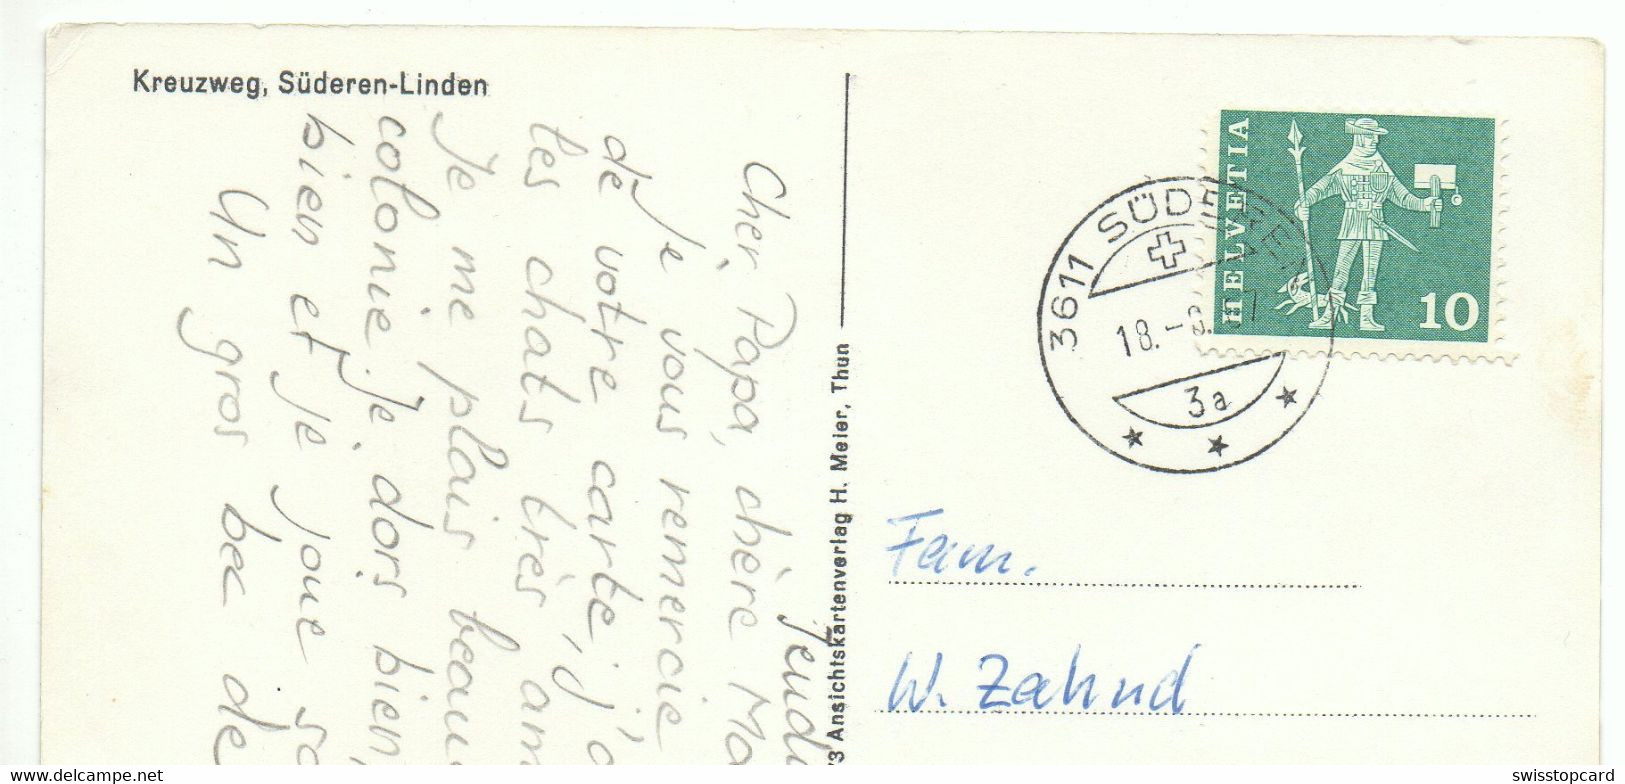 Kreuzweg, Süderen-Linden
HELVETIA
10
3611 SÜDEREN
18.-8.
3a
jeudi
Cher Papa, chère Ma
Je vous remercie
de votre carte, j'a
les chats très am
Je me plais beau
colonie. Je dors bien,
bien et je joue so
Un gros bec de
73 Ansichtskartenverlag H. Meier, Thun
Fam.
W. Zahnd
www.delcampe.net
swisstopcard